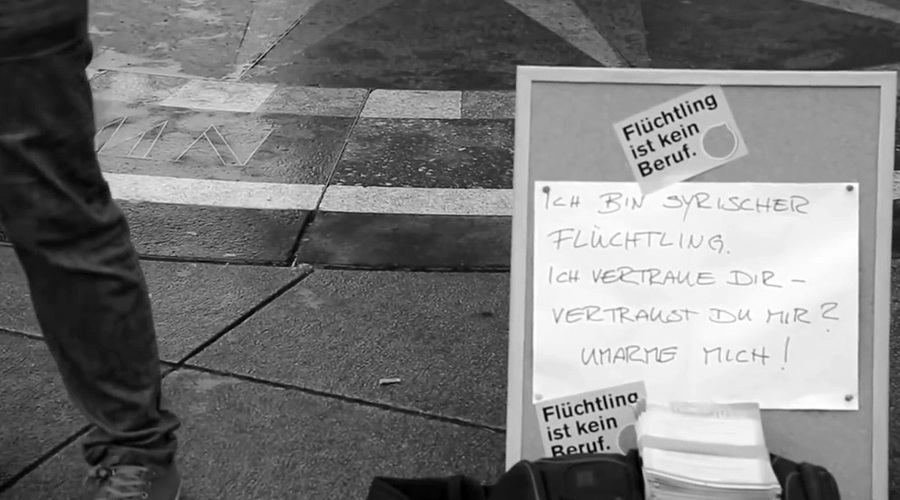 Flüchtling
ist kein
Beruf.
ICH BIN SYRISCHER
FLÜCHTLING.
ICH VERTRAUE DIR –
VERTRAUST DU MIR?
UMARME MICH!
Flüchtling
ist kein
Beruf.